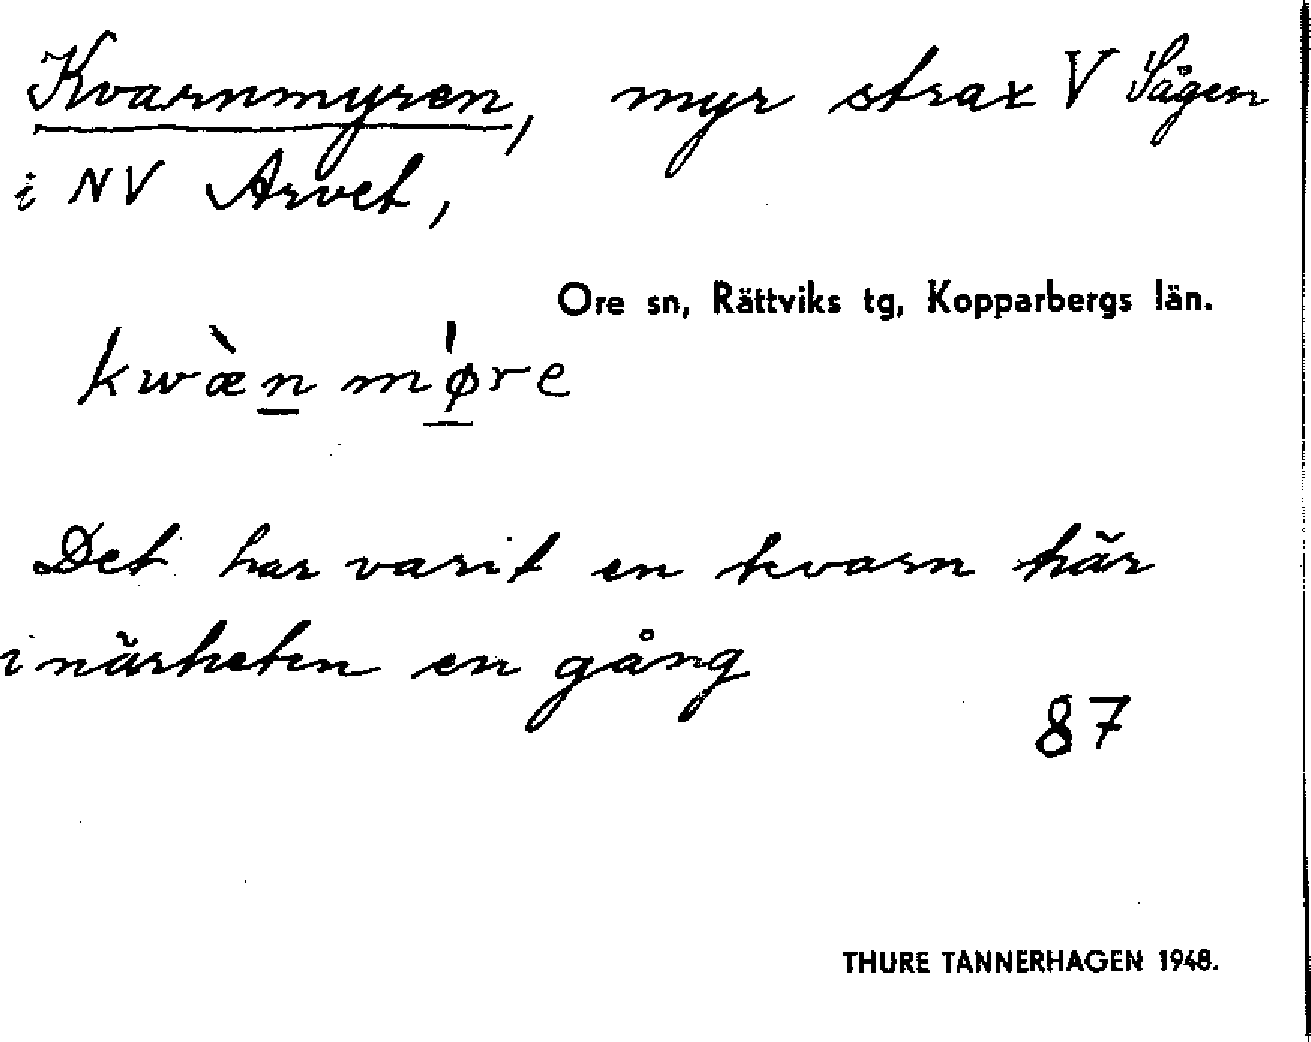 Kvarnmyren, myr strax V Sågen
i NV Arvet,
Ore sn, Rättviks tg, Kopparbergs län.
kwæ̀n møre
Det har varit en kvarn här
i närheten en gång
87
THURE TANNERHAGEN 1948.